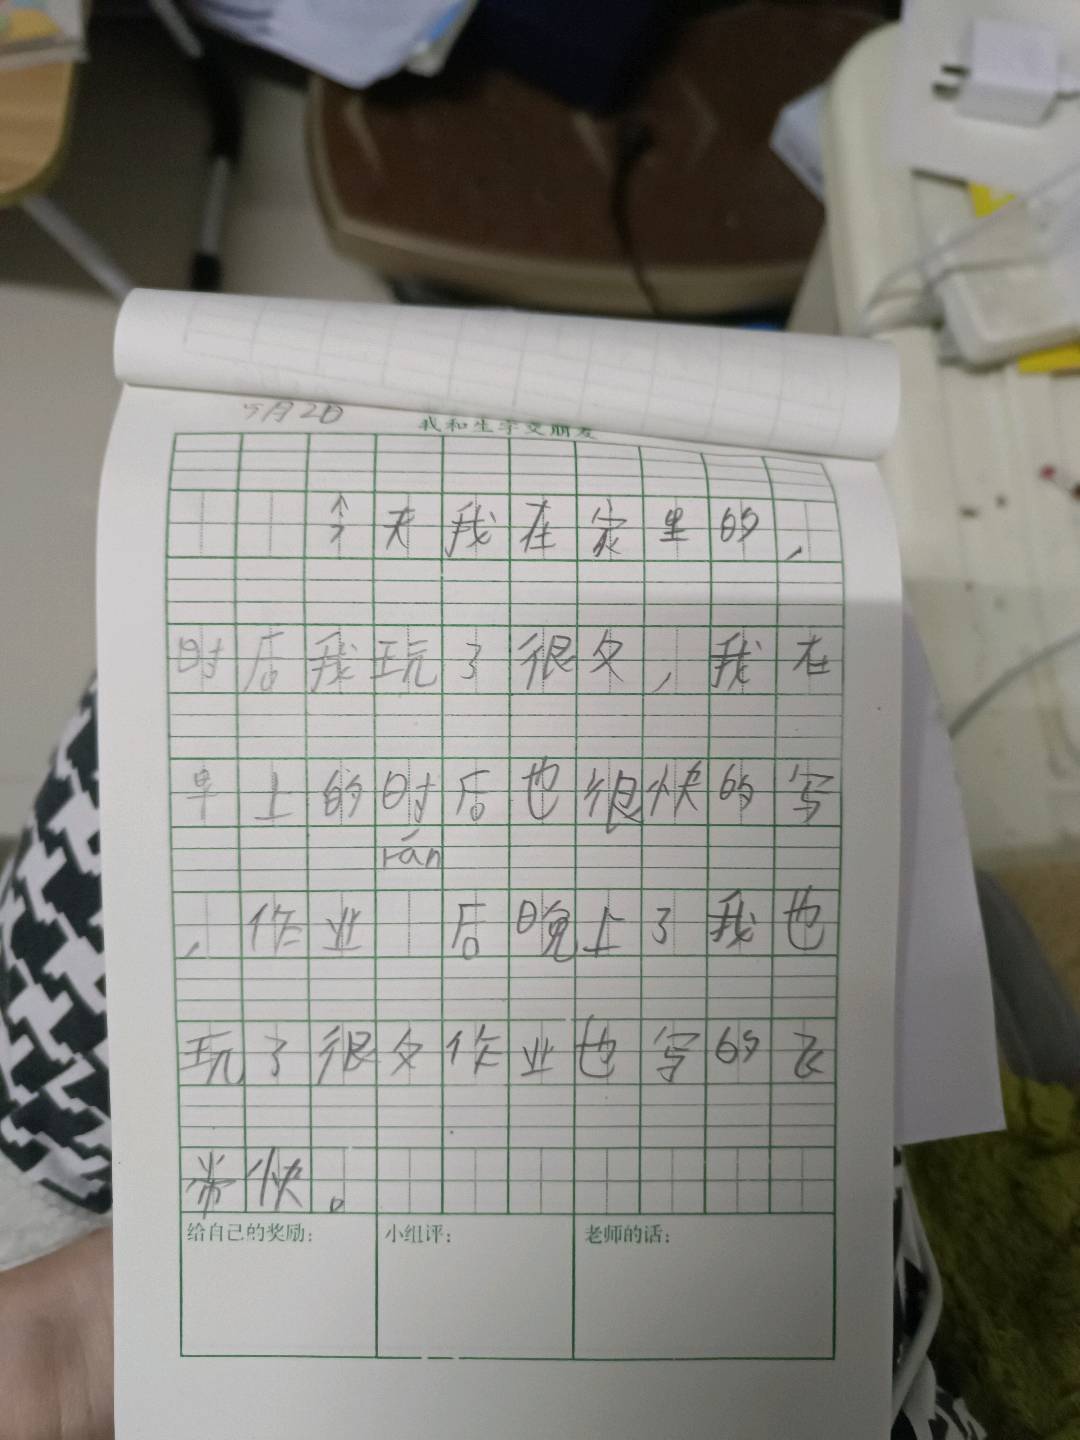 5月2日
我和生字交朋友
今天我在家里的,
时后我玩了很久,我在
早上的时后也很快的写
rán
,作业 后晚上了我也
玩了很久作业也写的飞
常快。
给自己的奖励: 小组评: 老师的话: